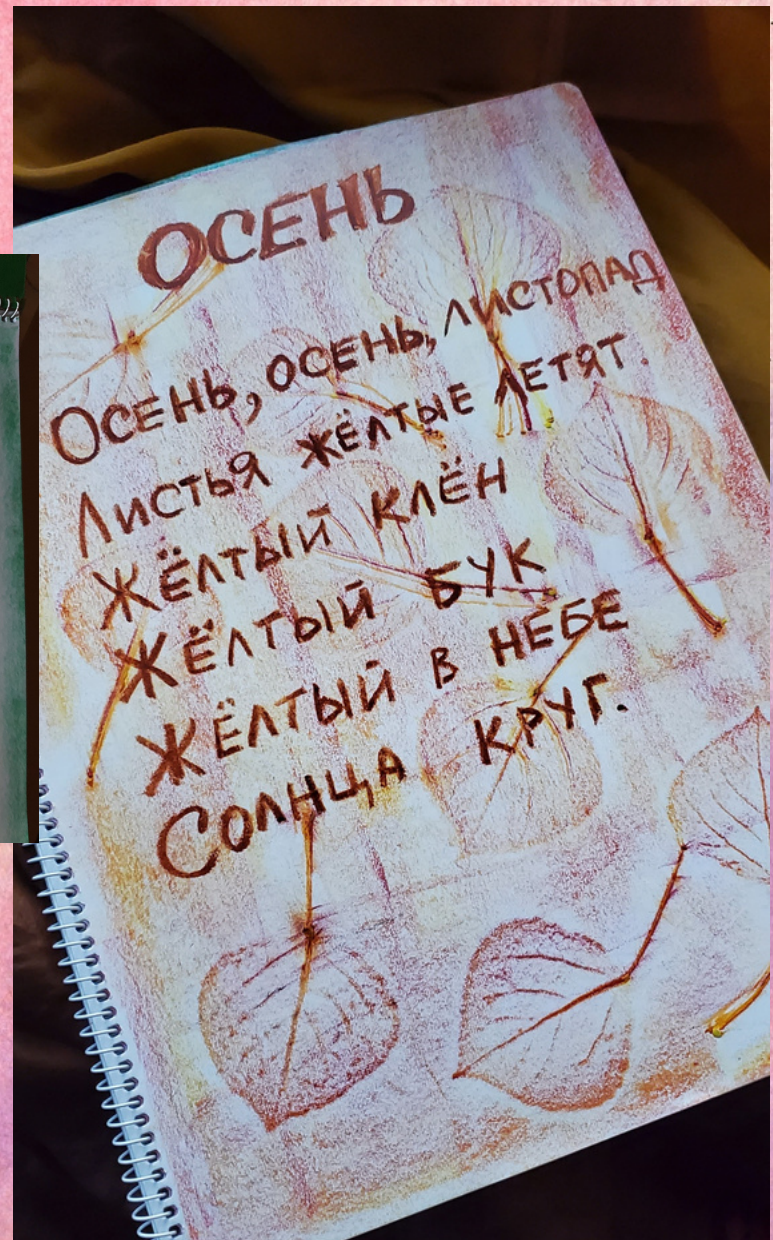 ОСЕНЬ
Осень, осень, листопад
Листья жёлтые летят.
Жёлтый клён
Жёлтый бук
Жёлтый в небе
Солнца круг.